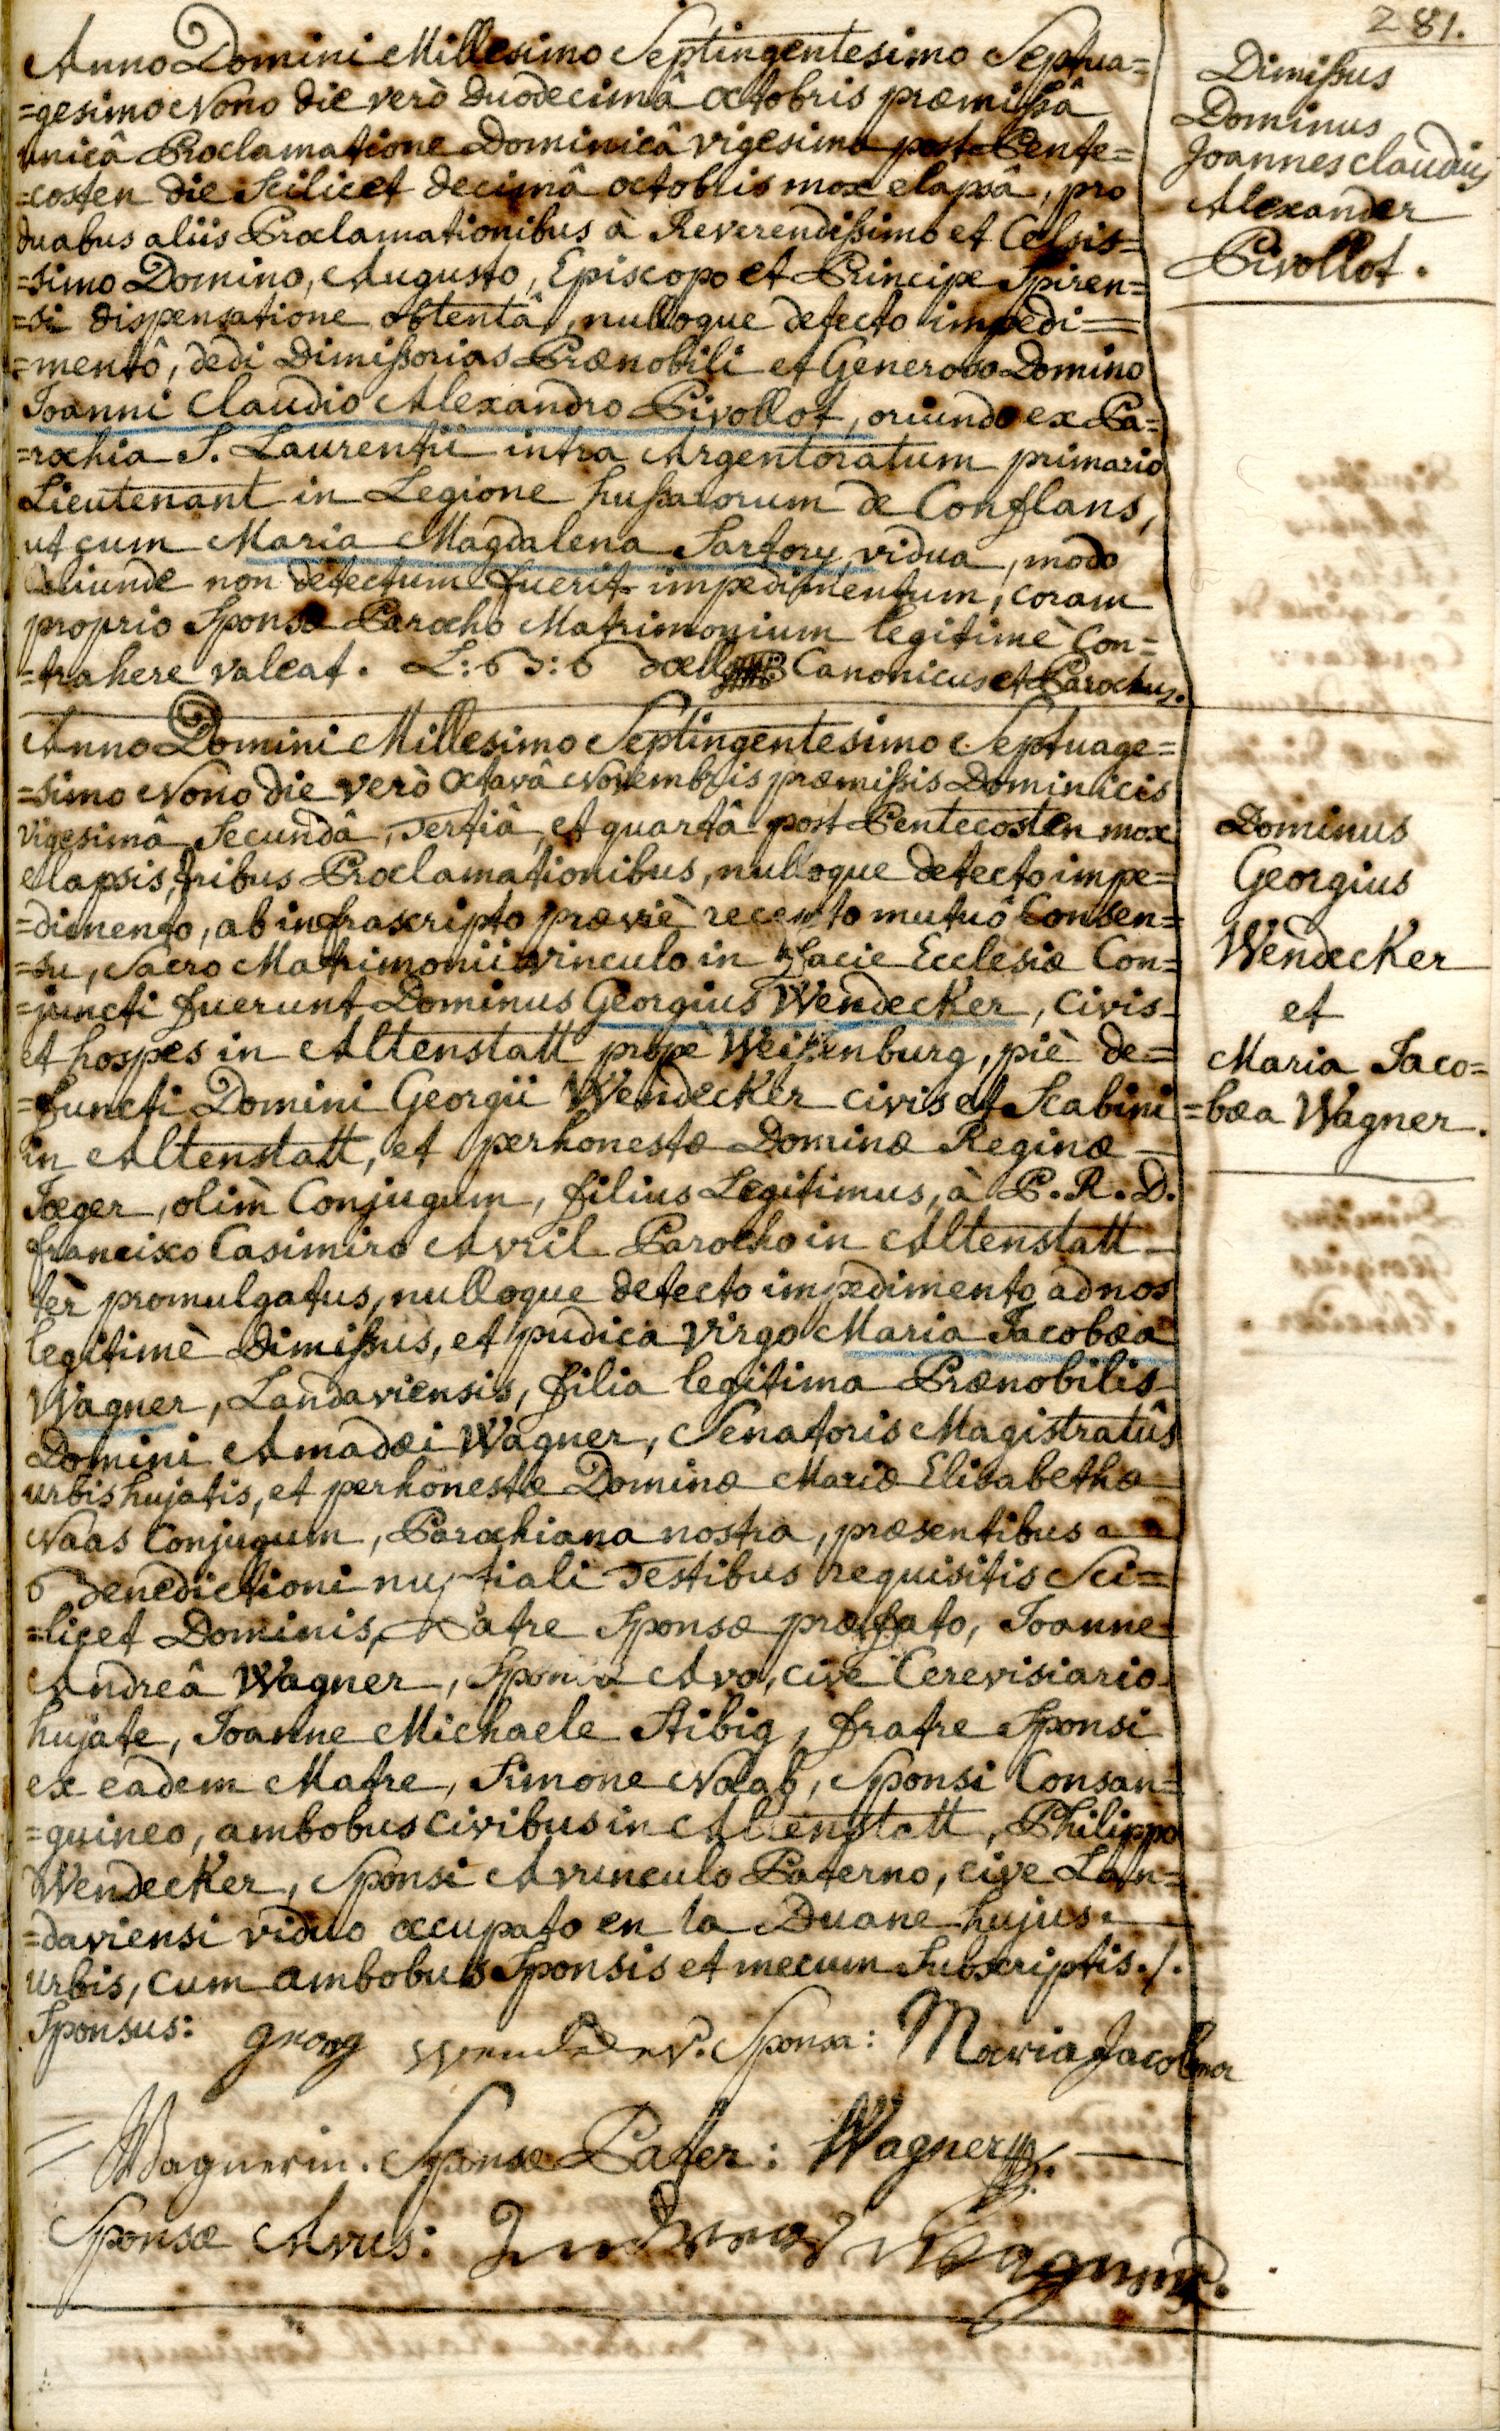 281.
Anno Domini Millesimo Septingentesimo Septua=
=gesimo Nono die verò duodecimâ octobris præmissâ
unicâ Proclamatione Dominicâ vigesima post Pente=
=costen die Scilicet decimâ octobris mox elapsâ, pro
duabus aliis Proclamationibus à Reverendissimo et Celsis=
=simo Domino, Augusto, Episcopo et Principe Spiren=
=si dispensatione obtentâ, nulloque detecto impedi=
=mentô, dedi Dimissorias Prænobili et Generoso Domino
Joanni Claudio Alexandro Pivollot, oriundo ex Pa=
=rochia S. Laurentii intra Argentoratum primario
Lieutenant in Legione hussarorum de Conflans,
ut cum Maria Magdalena Sartory, vidua, modo
aliunde non detectum fuerit impedimentum, coram
proprio Sponsæ Parocho Matrimonium legitimè Con=
=trahere valeat. Canonicus et Parochus.
Dimissus
Dominus
Joannes Claudius
Alexander
Pivollot.
Anno Domini Millesimo Septingentesimo Septuage=
=simo Nono die verò octavâ Novembris præmissis Dominicis
vigesimâ Secundâ, Tertiâ, et quartâ post Pentecosten mox
elapsis, tribus Proclamationibus, nulloque detecto impe=
=dimento, ab infrascripto præviè recepto mutuô Consen=
=su, Sacro Matrimonii vinculo in facie Ecclesiæ Con=
=juncti fuerunt Dominus Georgius Wendecker, civis
et hospes in Altenstatt propè Weissenburg, piè de=
=functi Domini Georgii Wendecker civis et Scabini
in Altenstatt, et perhonestæ Dominæ Reginæ
Jæger, olim Conjugum, filius Legitimus, à P. R. D.
francisco Casimiro Avril Parocho in Altenstatt
ter promulgatus, nulloque detecto impedimento ad nos
legitimè dimissus, et pudica virgo Maria Jacobæa
Wagner, Landaviensis, filia legitima Prænobilis
Domini Amadæi Wagner, Senatoris Magistratûs
urbis hujatis, et perhonestæ Dominæ Mariæ Elisabethæ
Naas Conjugum, Parochiana nostra, præsentibus
Benedictioni nuptiali Testibus requisitis Sci=
=licet Dominis, Patre Sponsæ præfato, Joanne
Andreâ Wagner, Sponsæ Avo, cive Cerevisiario
hujate, Joanne Michaele Stibig, fratre Sponsi
ex eadem Matre, Simone Naab, Sponsi Consan=
=guineo, ambobus civibus in Altenstatt, Philippo
Wendecker, Sponsi Avunculo Paterno, cive Lan=
=daviensi viduo occupato en la Duane hujus
urbis, cum ambobus Sponsis et mecum Subscriptis./.
Dominus
Georgius
Wendecker
et
Maria Jaco=
=bæa Wagner.
Sponsus: Georg Wendecker. Sponsa: Maria Jacobea
Wagnerin. Sponsæ Pater: Wagner
Sponsæ Avus: Andreas Wagner.